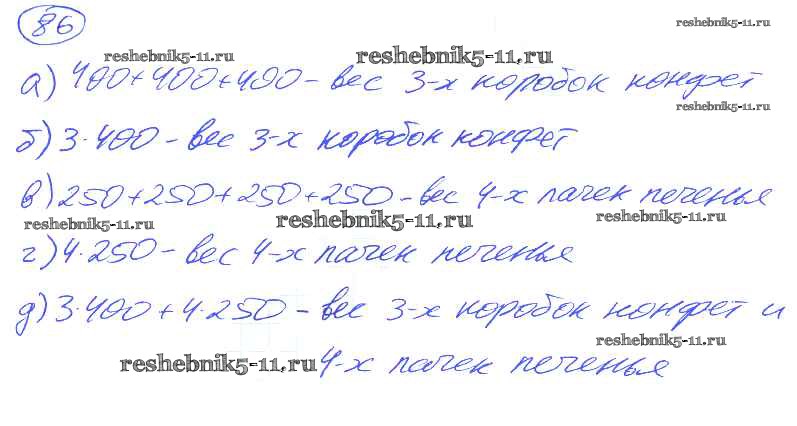 86
reshebnik5-11.ru
reshebnik5-11.ru reshebnik5-11.ru
а) 400+400+400 - вес 3-х коробок конфет
reshebnik5-11.ru
б) 3·400 - вес 3-х коробок конфет
в) 250+250+250+250 - вес 4-х пачек печенья
reshebnik5-11.ru reshebnik5-11.ru reshebnik5-11.ru
г) 4·250 - вес 4-х пачек печенья
д) 3·400+4·250 - вес 3-х коробок конфет и
reshebnik5-11.ru
reshebnik5-11.ru 4-х пачек печенья